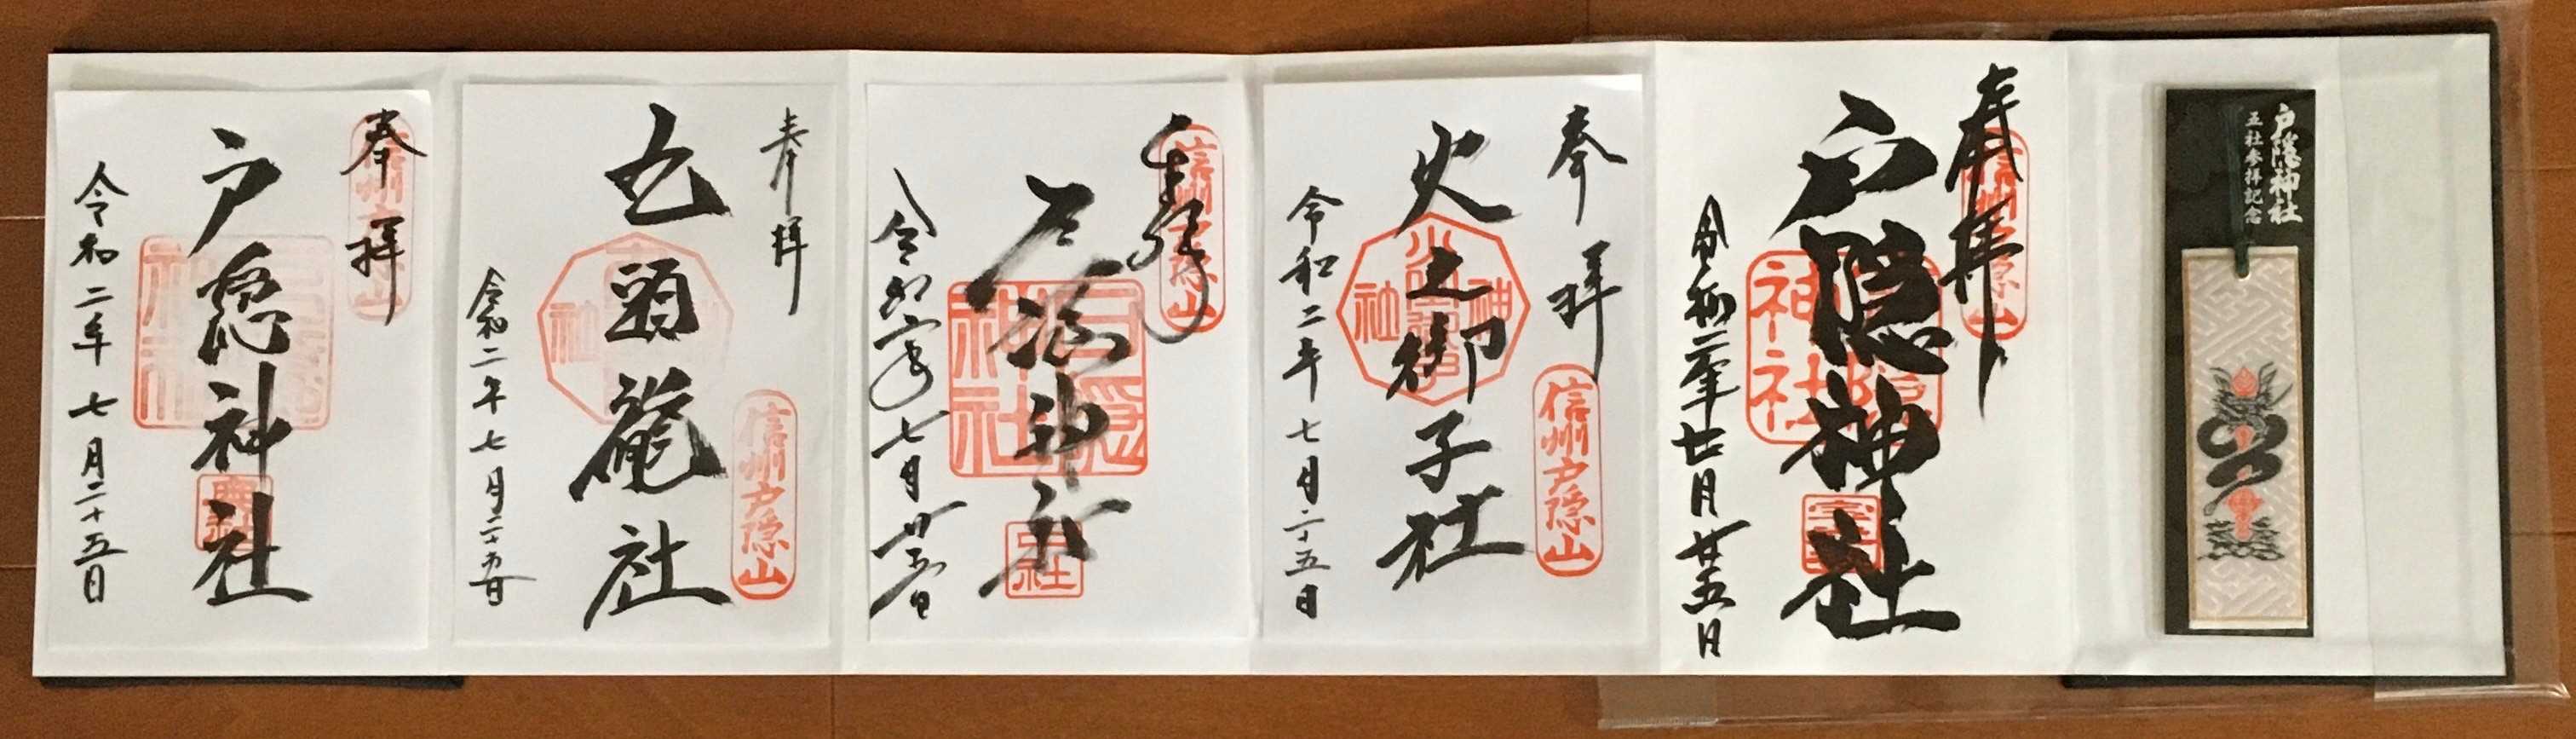 戸隠神社
五社参拝記念
奉拝
信州戸隠山
戸隠神社
宝社
令和二年七月廿五日
奉拝
信州戸隠山
火之御子社
令和二年七月二十五日
奉拝
信州戸隠山
戸隠神社
中社
令和二年七月廿五日
奉拝
信州戸隠山
九頭龍社
令和二年七月二十五日
奉拝
信州戸隠山
戸隠神社
奥社
令和二年七月二十五日